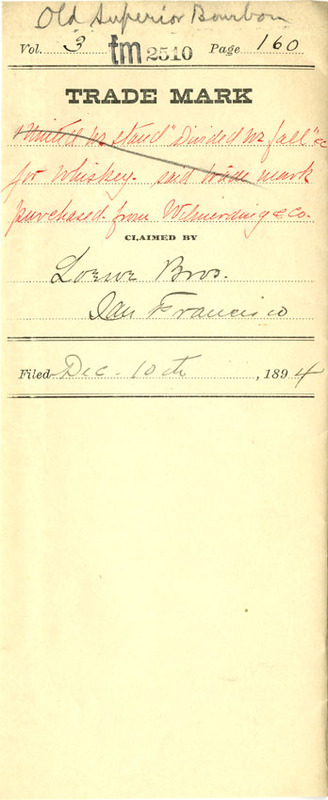 Old Superior Bourbon
Vol. 3 tm 2510 Page 160
TRADE MARK
"United we stand" Divided we fall" &c
for Whiskey. said trade mark
purchased from Wilmerding & Co.
CLAIMED BY
Loewe Bros.
San Francisco
Filed Dec. 10th, 1894